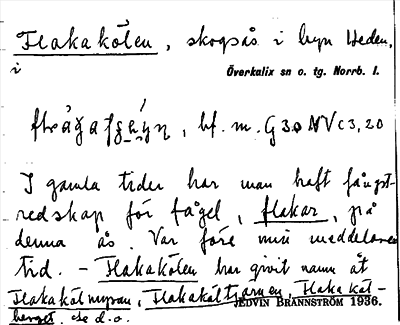 Flakakölen, skogsås i byn Heden,
i Överkalix sn o. tg. Norrb. l.
bf. m. G30 NV c3,20
I gamla tider har man haft fångst-
redskap för fågel, flakar, på
denna ås. Var före min meddelares
tid. - Flakakölen har givit namn åt
Flakakölmyran, Flakaköltjärnen, Flakaköl-
berget. Se d.o.
JEDVIN BRÄNNSTRÖM 1936.